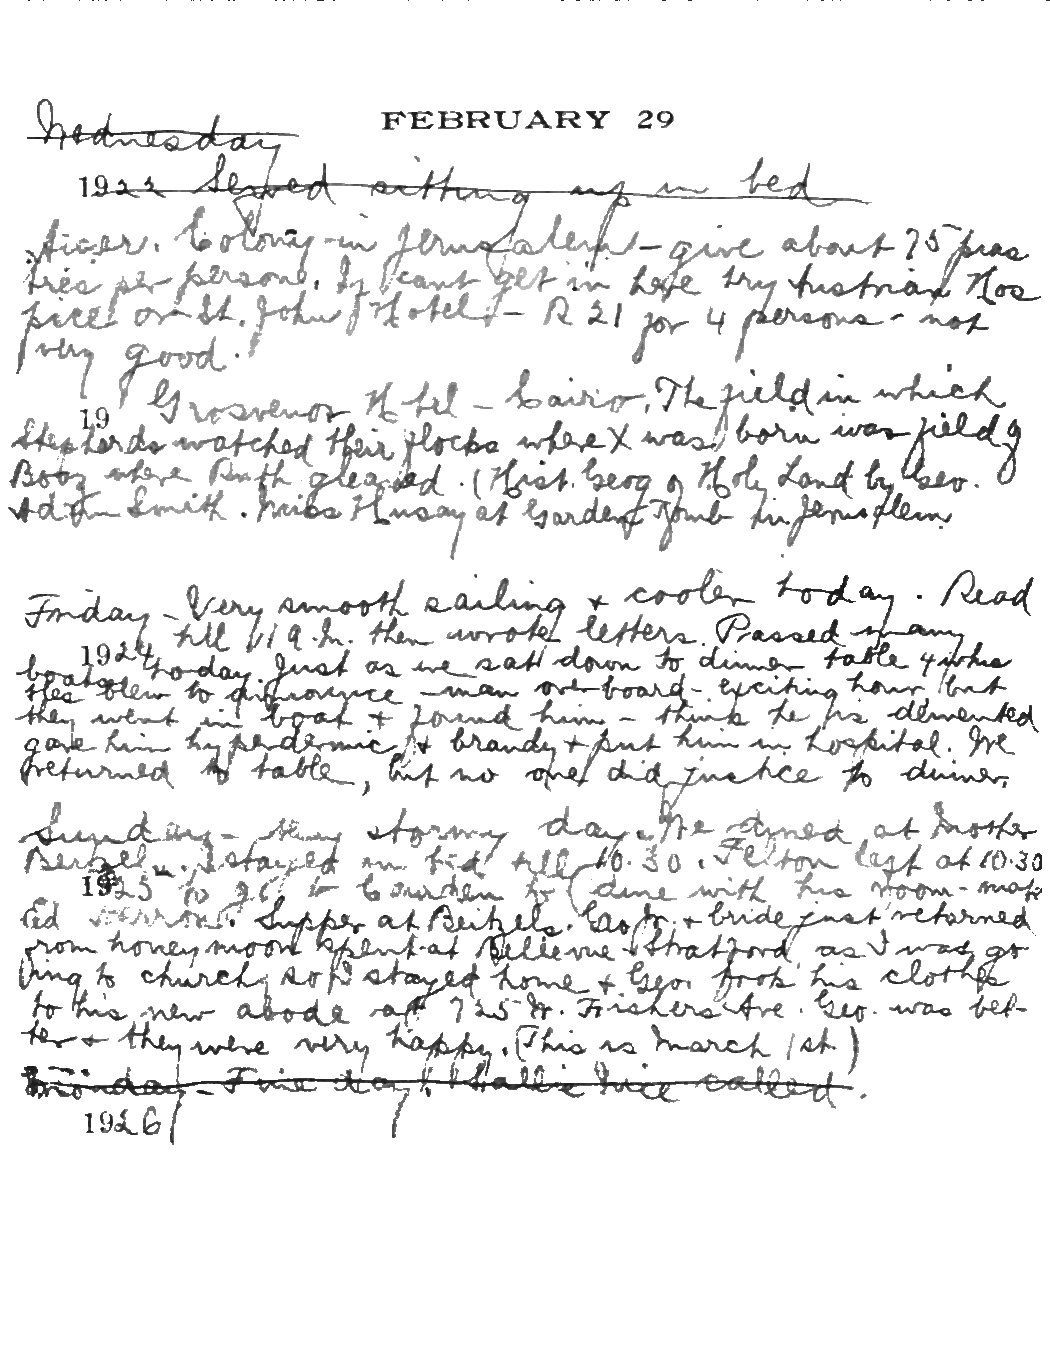 FEBRUARY 29
Wednesday
1922 Sewed sitting up in bed
Amer. Colony in Jerusalem - give about 75 pias
tres per person. If cant get in here try Austrian Hos
pice or St. John Hotel - R 21 for 4 persons - not
very good.
Grosvenor Hotel - Cairo. The field in which
19
Shepherds watched their flocks where X was born was field of
Boaz where Ruth gleaned. (Hist. Geog of Holy Land by Geo.
Adam Smith. Miss Husay at Garden Tomb in Jerusalem
Friday - Very smooth sailing + cooler today. Read
1924 till 11 A.M. then wrote letters. Passed many
boats today. Just as we sat down to dinner table 4 whis
tles blew to announce - man overboard - exciting hour but
they went in boat + found him - think he is demented
gave him hyperdermic, + brandy + put him in hospital. We
returned to table, but no one did justice to dinner.
Sunday - Very stormy day. We dined at Mother
Beitzel. I stayed in bed till 10.30. Felton left at 10.30
1925 to go to Camden to dine with his room-mate
Ed. Supper at Beitzels. Geo Jr. + bride just returned
from honeymoon spent at Bellevue-Stratford, as I was go
ing to church, so I stayed home + Geo. took his clothes
to his new abode at 725 W. Fishers Ave. Geo. was bet-
ter + they were very happy. (This is March 1st.)
Monday - Fine day. Sallie Price called.
1926